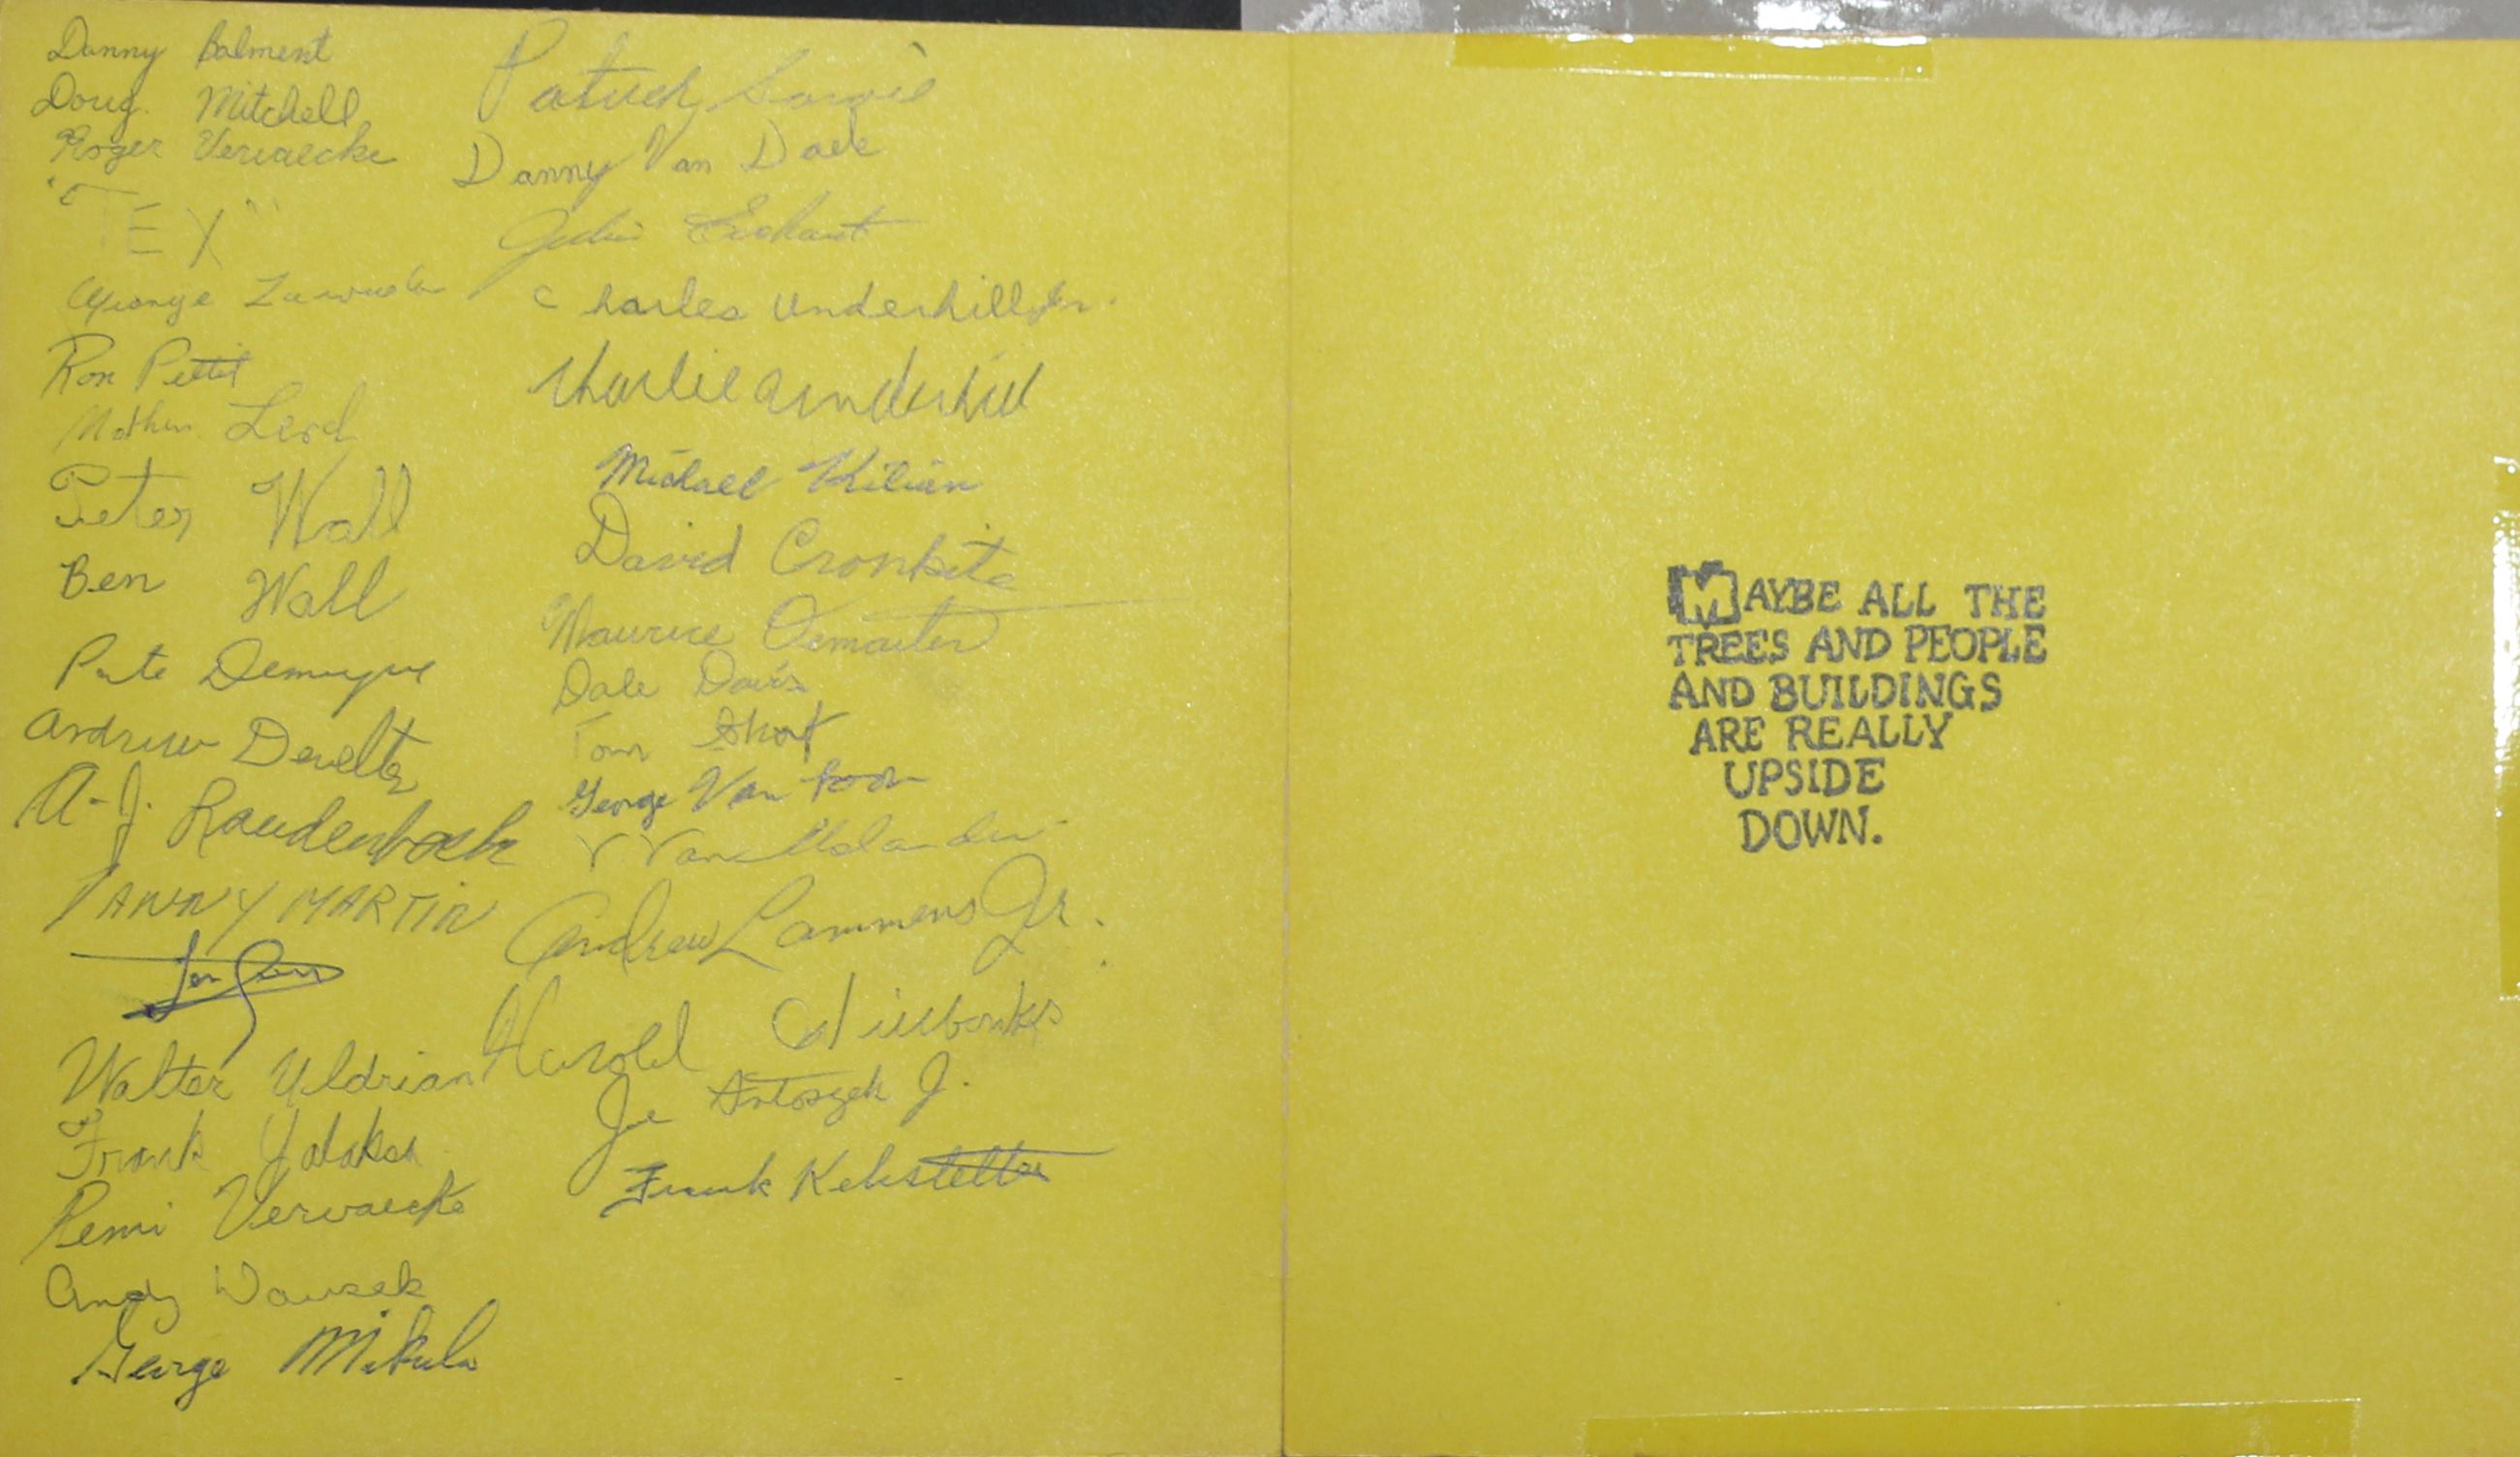 Danny Balment
Doug. Mitchell
Roger Vervaecke
"TEX"
George
Ron Pettit
Lord
Peter Wall
Ben Wall
Pete
Andrew Develter
A-J. Raudenbosk
DANNY MARTIN
Walter Uldrian
Frank
Remi Vervaecke
Andy Wawzek
George Mikula
Patrick
Danny Van Dale
Charles Underhill Jr.
Charlie Underhill
Michael Kilian
David Cronkite
Maurice
Dale Davis
Tom Short
George Van
Andrew Lammens Jr.
Harold
Joe Antoszek J.
Frank Kehstetter
MAYBE ALL THE
TREES AND PEOPLE
AND BUILDINGS
ARE REALLY
UPSIDE
DOWN.